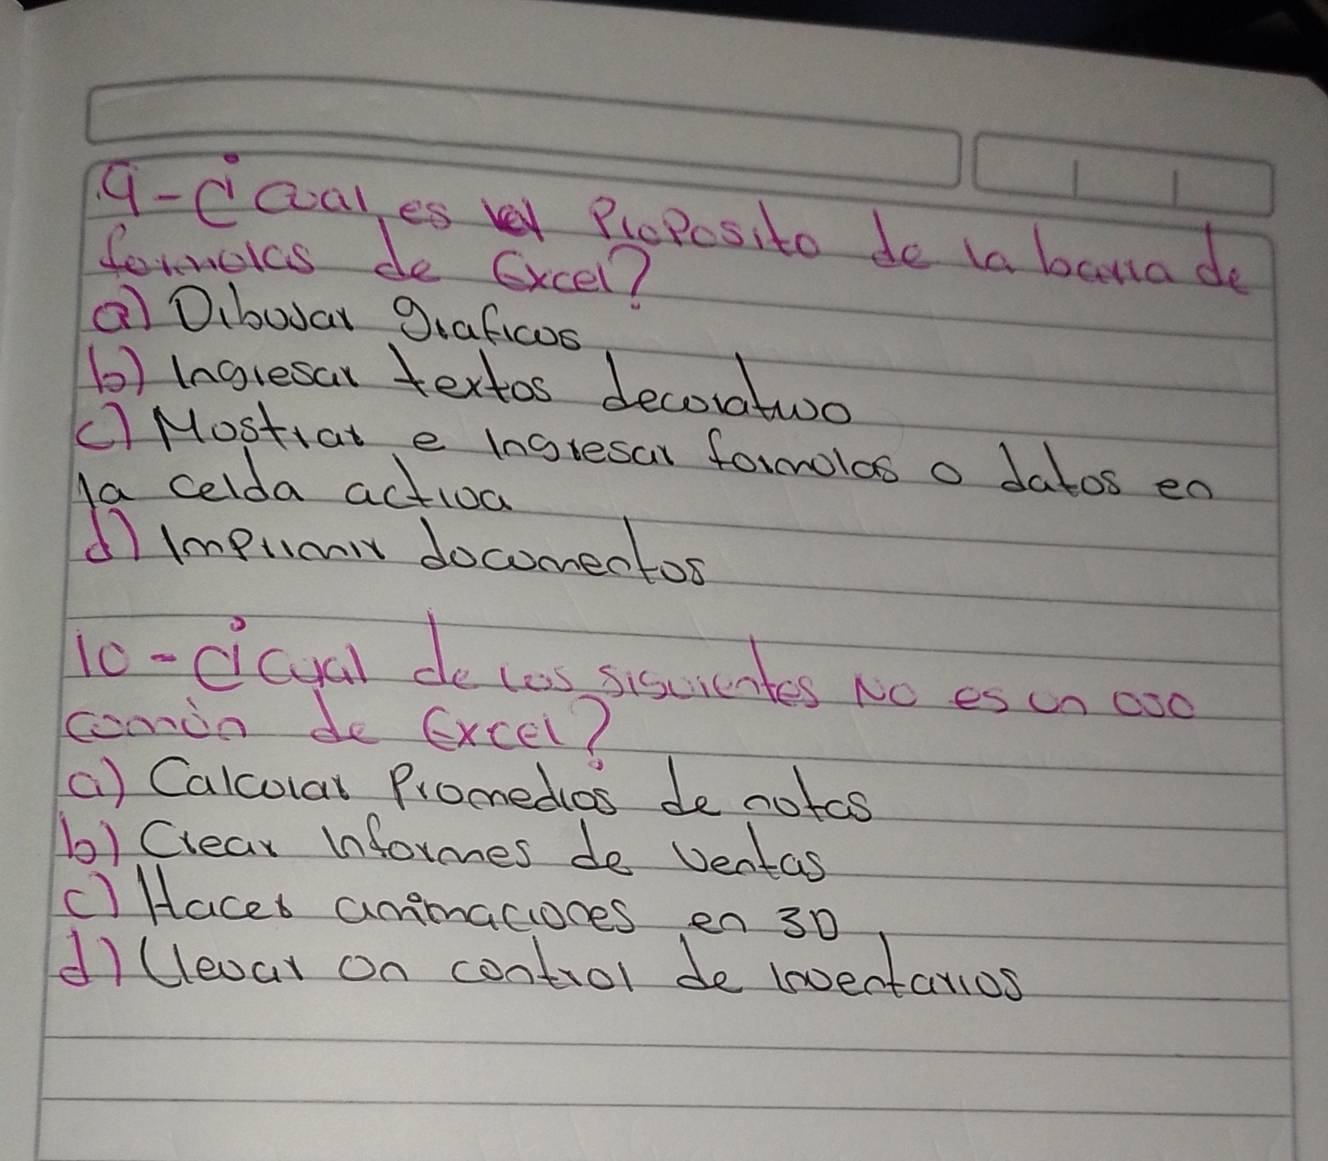 9-¿Cual es el Proposito de la barra de
formulas de Excel?
a) Dibujar graficos
b) Ingresar textos decorativo
c) Mostrar e Ingresar formulas o datos en
la celda activa
d) Imprimir documentos
10-¿Cual de los siguientes NO es un uso
común de Excel?
a) Calcular Promedios de notas
b) Crear Informes de Ventas
c) Hacer animaciones en 3D
d) Llevar un control de Inventarios